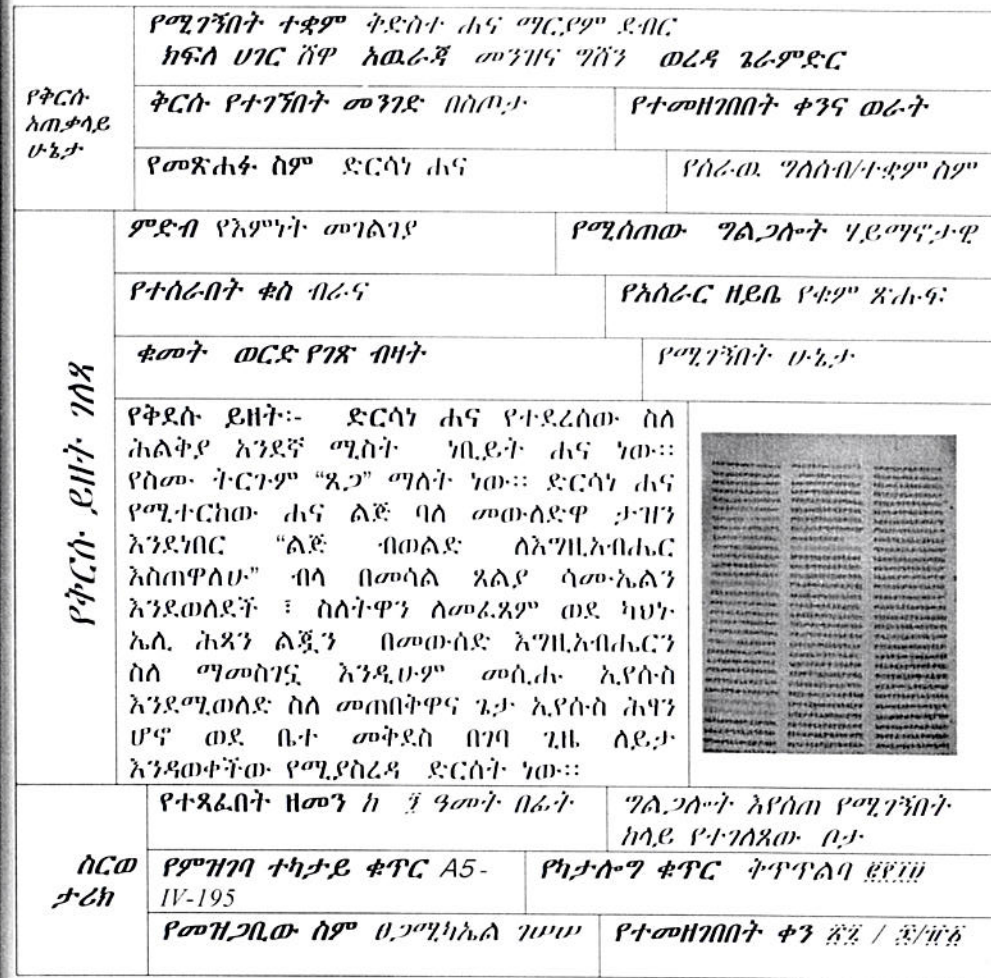 የሚገኝበት ተቋም ቅድስተ ሐና ማርያም ደብር
ክፍለ ሀገር ሸዋ አዉራጃ መንዝና ግሸን ወረዳ ጌራምድር
የቅርሱ
አጠቃላይ
ሁኔታ
ቅርሱ የተገኘበት መንገድ በስጦታ
የተመዘገበበት ቀንና ወራት
የመጽሐፉ ስም ድርሳነ ሐና
የሰራዉ ግለሰብ/ተቋም ስም
የቅርሱ ይዘት ገለጻ
ምድብ የእምነት መገልገያ
የሚሰጠው ግልጋሎት ሃይማኖታዊ
የተሰራበት ቁስ ብራና
የአሰራር ዘይቤ የቁም ጽሑፍ
ቁመት ወርድ የገጽ ብዛት
የሚገኝበት ሁኔታ
የቅደሱ ይዘት፡- ድርሳነ ሐና የተደረሰው ስለ
ሕልቅያ አንደኛ ሚስት ነቢይት ሐና ነው።
የስሙ ትርጉም “ጸጋ” ማለት ነው። ድርሳነ ሐና
የሚተርከው ሐና ልጅ ባለ መውለድዋ ታዝን
እንደነበር “ልጅ ብወልድ ለእግዚአብሔር
እስጠዋለሁ” ብላ በመሳል ጸልያ ሳሙኤልን
እንደወለደች ፣ ስለትዋን ለመፈጸም ወደ ካህኑ
ኤሊ ሕጻን ልጇን በመውሰድ እግዚአብሔርን
ስለ ማመስገኗ እንዲሁም መሲሑ ኢየሱስ
እንደሚወለድ ስለ መጠበቅዋና ጌታ ኢየሱስ ሕፃን
ሆኖ ወደ ቤተ መቅደስ በገባ ጊዜ ለይታ
እንዳወቀችው የሚያስረዳ ድርሰት ነው።
ስርወ
ታሪክ
የተጻፈበት ዘመን ከ ዓመት በፊት
ግልጋሎት እየሰጠ የሚገኝበት
ከላይ የተገለጸው ቦታ
የምዝገባ ተካታይ ቁጥር A5-
IV-195
የካታሎግ ቁጥር ቅጥጥልባ
የመዝጋቢው ስም ፀጋሚካኤል
የተመዘገበበት ቀን